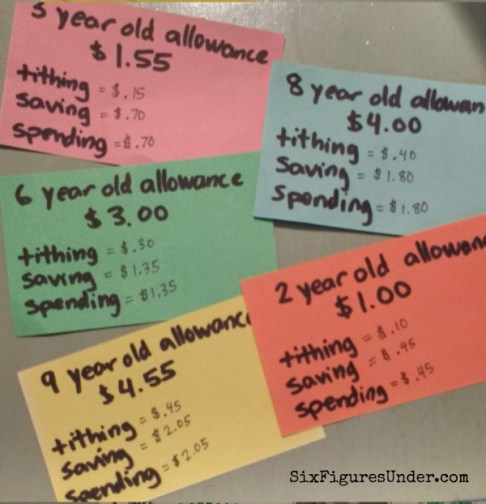 3 year old allowance
$1.55
tithing = $.15
saving = $.70
spending = $.70
8 year old allowan
$4.00
tithing = $.40
saving = $1.80
spending = $1.80
6 year old allowance
$3.00
tithing = $.30
saving = $1.35
spending = $1.35
2 year old allowan
$1.00
tithing = $.10
saving = $.45
spending = $.45
9 year old allowanc
$4.55
tithing = $.45
saving = $2.05
spending = $2.05
SixFiguresUnder.com